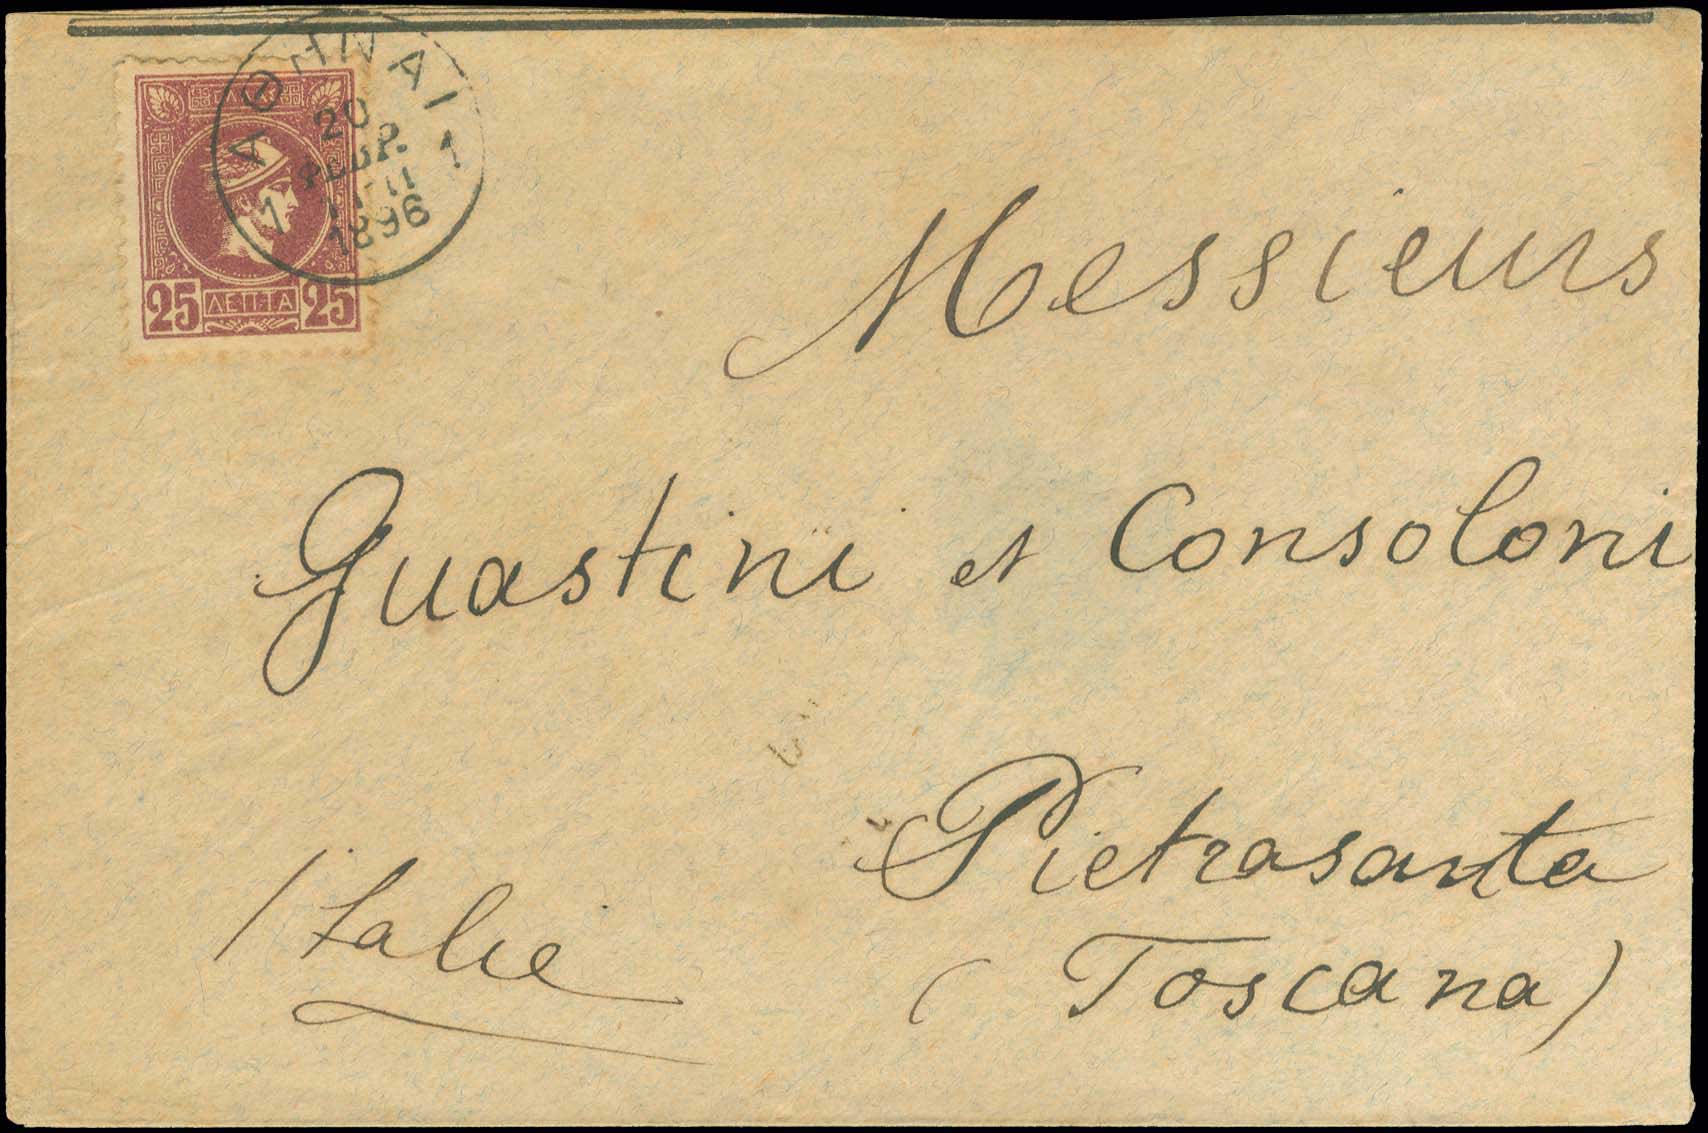 ΕΛΛΑΣ
25 ΛΕΠΤΑ 25
ΑΘΗΝΑΙ
20
ΦΕΒΡ.
1 1
1896
Messieurs
Guastini et Consoloni
Pietrasanta
(Toscana)
Italie